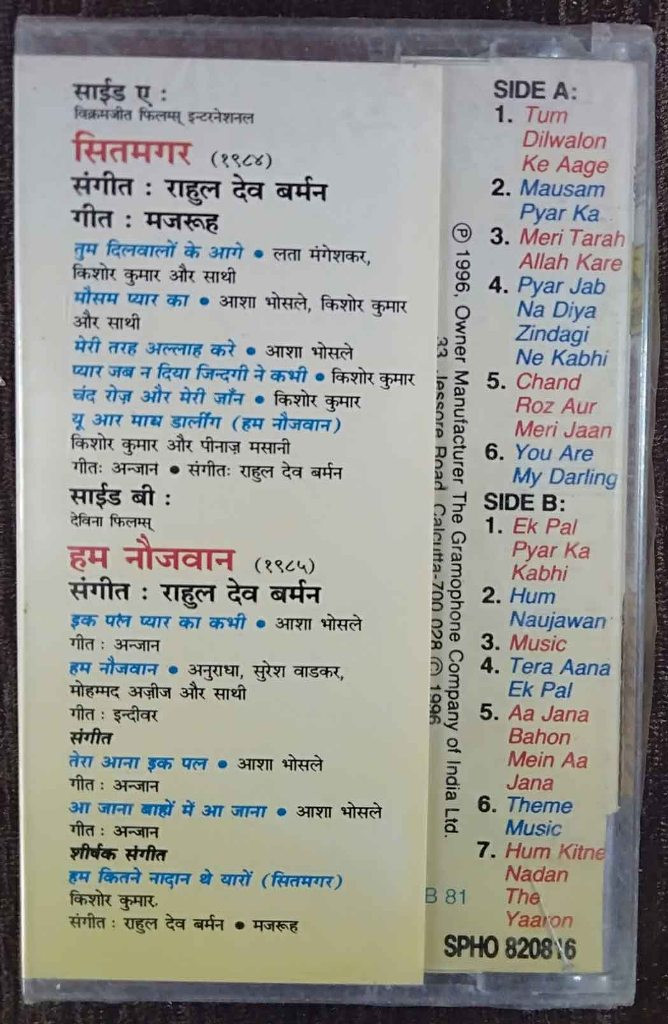 साईड ए :
विक्रमजीत फिलम्स् इन्टरनेशनल
सितमगर (१९८४)
संगीत : राहुल देव बर्मन
गीत : मजरूह
तुम दिलवालों के आगे • लता मंगेशकर,
किशोर कुमार और साथी
मौसम प्यार का • आशा भोसले, किशोर कुमार
और साथी
मेरी तरह अल्लाह करे • आशा भोसले
प्यार जब न दिया जिन्दगी ने कभी • किशोर कुमार
चंद रोज़ और मेरी जाँन • किशोर कुमार
यू आर माय डार्लींग (हम नौजवान)
किशोर कुमार और पीनाज़ मसानी
गीतः अन्जान • संगीतः राहुल देव बर्मन
साईड बी :
देविना फिलम्स्
हम नौजवान (१९८५)
संगीत : राहुल देव बर्मन
इक पल प्यार का कभी • आशा भोसले
गीत : अन्जान
हम नौजवान • अनुराधा, सुरेश वाडकर,
मोहम्मद अज़ीज और साथी
गीत : इन्दीवर
संगीत
तेरा आना इक पल • आशा भोसले
गीत : अन्जान
आ जाना बाहों में आ जाना • आशा भोसले
गीत : अन्जान
शीर्षक संगीत
हम कितने नादान थे यारों (सितमगर)
किशोर कुमार.
संगीत : राहुल देव बर्मन • मजरूह
Ⓟ 1996, Owner Manufacturer The Gramophone Company of India Ltd.
33, Jessore Road, Calcutta-700 028 © 1996
SIDE A:
1. Tum
Dilwalon
Ke Aage
2. Mausam
Pyar Ka
3. Meri Tarah
Allah Kare
4. Pyar Jab
Na Diya
Zindagi
Ne Kabhi
5. Chand
Roz Aur
Meri Jaan
6. You Are
My Darling
SIDE B:
1. Ek Pal
Pyar Ka
Kabhi
2. Hum
Naujawan
3. Music
4. Tera Aana
Ek Pal
5. Aa Jana
Bahon
Mein Aa
Jana
6. Theme
Music
7. Hum Kitne
Nadan
The
Yaaron
B 81
SPHO 820816